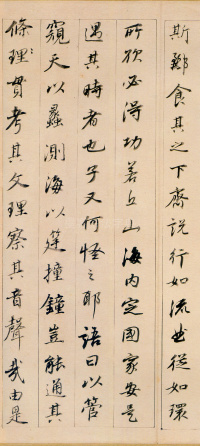 斯酈食其之下齋說行如流曲從如環
所欲必得功若丘山海內定國家安是
遇其時者也子又何怪之耶語曰以管
窺天以蠡測海以莛撞鐘豈能通其
條理貫考其文理察其音聲哉由是